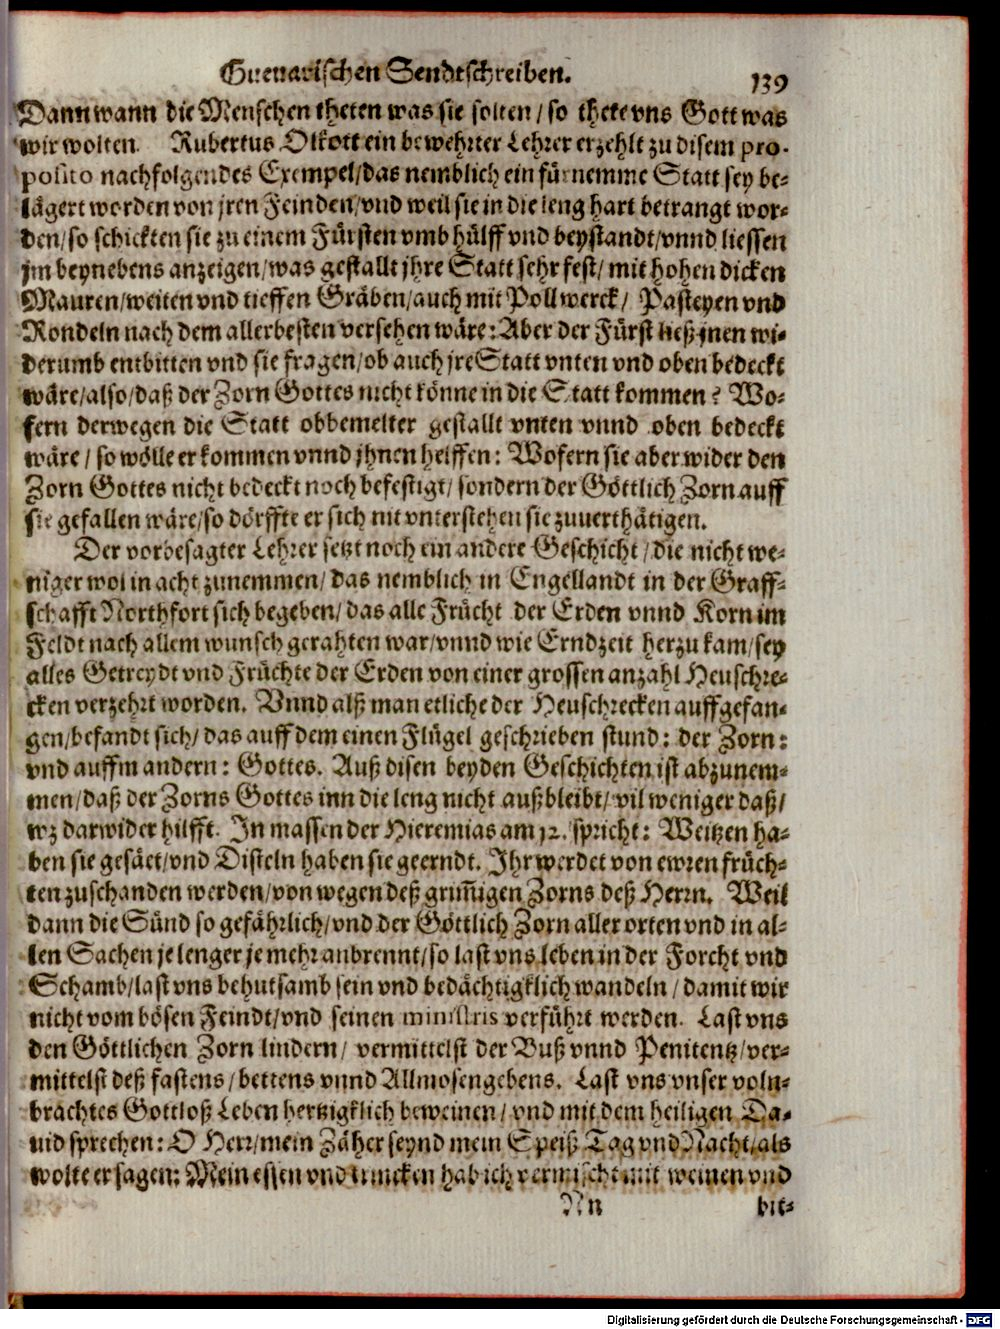 Gueuarischen Sendtschreiben. 139
Dann wann die Menschen theten was sie solten/ so thete vns Gott was
wir wolten. Rubertus Olkott ein bewehrter Lehrer erzehlt zu disem pro-
posito nachfolgendes Exempel/das nemblich ein fürnemme Statt sey be-
lägert worden von jren Feinden/vnd weil sie in die leng hart betrangt wor-
den/so schickten sie zu einem Fürsten vmb hülff vnd beystandt/vnnd liessen
jm beynebens anzeigen/was gestallt jhre Statt sehr fest/ mit hohen dicken
Mauren/weiten vnd tieffen Gräben/auch mit Pollwerck/ Pasteyen vnd
Rondeln nach dem allerbesten versehen wäre: Aber der Fürst ließ jnen wi-
derumb entbitten vnd sie fragen/ob auch jre Statt vnten vnd oben bedeckt
wäre/also/daß der Zorn Gottes nicht könne in die Statt kommen? Wo-
fern derwegen die Statt obbemelter gestallt vnten vnnd oben bedeckt
wäre/ so wölle er kommen vnnd jhnen helffen: Wofern sie aber wider den
Zorn Gottes nicht bedeckt noch befestigt/ sondern der Göttlich Zorn auff
sie gefallen wäre/so dörffte er sich nit vnterstehen sie zuuerthätigen.
Der vorbesagter Lehrer setzt noch ein andere Geschicht/die nicht we-
niger wol in acht zunemmen/ das nemblich in Engellandt in der Graff-
schafft Northfort sich begeben/ das alle Frücht der Erden vnnd Korn im
Feldt nach allem wunsch gerahten war/vnnd wie Erndzeit herzu kam/sey
alles Getreydt vnd Früchte der Erden von einer grossen anzahl Heuschre-
cken verzehrt worden. Vnnd alß man etliche der Heuschrecken auffgefan-
gen/befandt sich/ das auff dem einen Flügel geschrieben stund: der Zorn:
vnd auffm andern: Gottes. Auß disen beyden Geschichten ist abzunem-
men/daß der Zorns Gottes inn die leng nicht außbleibt/vil weniger daß/
wz darwider hilfft. In massen der Hieremias am 12. spricht: Weitzen ha-
ben sie gesäet/vnd Disteln haben sie geerndt. Ihr werdet von ewren früch-
ten zuschanden werden/von wegen deß grim̃igen Zorns deß Herrn. Weil
dann die Sünd so gefährlich/vnd der Göttlich Zorn aller orten vnd in al-
len Sachen je lenger je mehr anbrennt/so last vns leben in der Forcht vnd
Schamb/last vns behutsamb sein vnd bedächtigklich wandeln/damit wir
nicht vom bösen Feindt/vnd seinen ministris verführt werden. Last vns
den Göttlichen Zorn lindern/ vermittelst der Buß vnnd Penitentz/ver-
mittelst deß fastens/bettens vnnd Allmosengebens. Last vns vnser voln-
brachtes Gottloß Leben hertzigklich beweinen/ vnd mit dem heiligen Da-
uid sprechen: O Herr/mein Zäher seynd mein Speiß Tag vnd Nacht/als
wolte er sagen: Mein essen vnd trincken hab ich vermischt mit weinen vnd
Nn bit-
Digitalisierung gefördert durch die Deutsche Forschungsgemeinschaft - DFG